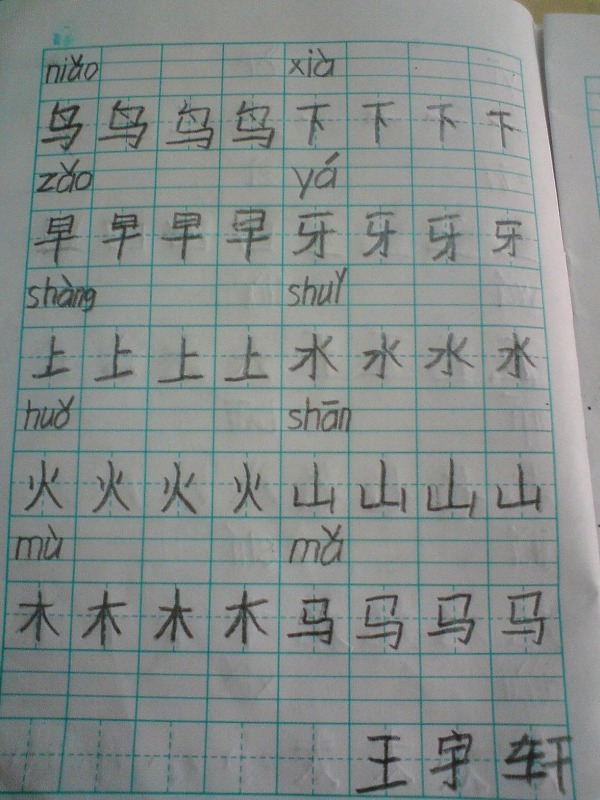 niǎo xià
鸟 鸟 鸟 鸟 下 下 下 下
zǎo yá
早 早 早 早 牙 牙 牙 牙
shàng shuǐ
上 上 上 上 水 水 水 水
huǒ shān
火 火 火 火 山 山 山 山
mù mǎ
木 木 木 木 马 马 马 马
王 宇 轩